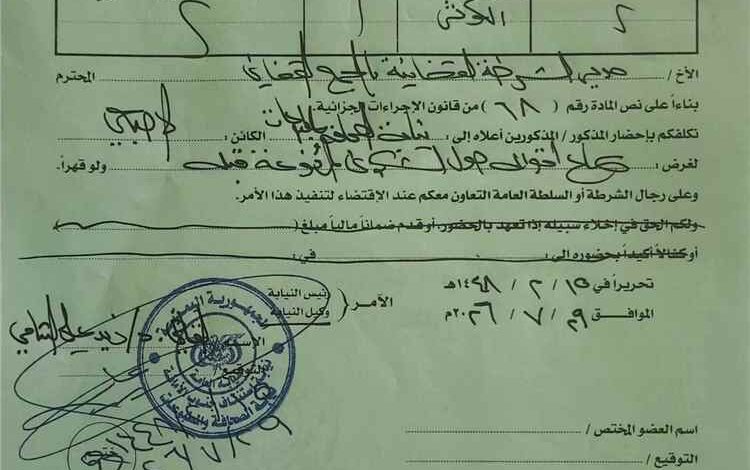 الأخ / مدير الشرطة القضائية بالمجمع القضائي المحترم
بناءاً على نص المادة رقم ( ٦٨ ) من قانون الإجراءات الجزائية.
نكلفكم بإحضار المذكور / المذكورين أعلاه إلى : نيابة الصحافة والمطبوعات الكائن : الأصبحي
لغرض : سماع أقواله حول الشكوى المرفوعة قبله ولو قهراً.
وعلى رجال الشرطة أو السلطة العامة التعاون معكم عند الإقتضاء لتنفيذ هذا الأمر.
ولكم الحق في إخلاء سبيله إذا تعهد بالحضور. أو قدم ضماناً مالياً مبلغ (
أو كفالاً أكيداً بحضوره إلى : في :
تحريراً في ١٥ / ٢ / ١٤٤٨هـ
الموافق ٢٩ / ٧ / ٢٠٢٦م
الآمر ( رئيس النيابة
وكيل النيابة
الإسم : القاضي د/
التوقيع :
الجمهورية اليمنية
نيابة الصحافة والمطبوعات
اسم العضو المختص /
التوقيع /